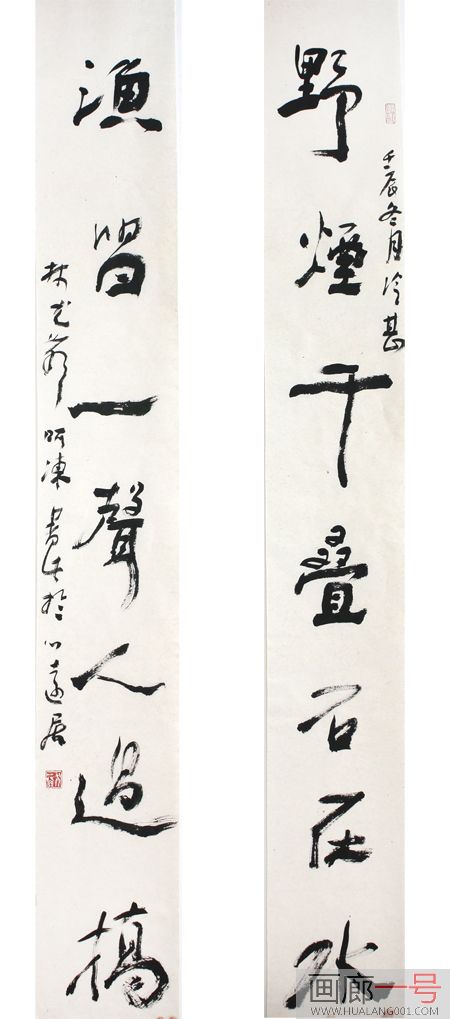 野煙千叠石在水
壬辰冬月冷甚
漁唱一聲人過橋
林 呵凍書此於心遠居
画廊一号
WWW.HUALANG001.COM